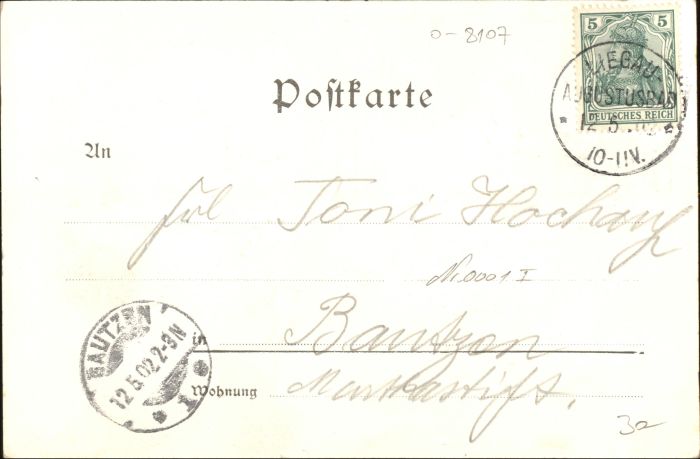 0-8107
5 5
DEUTSCHES REICH
LIEGAU.
AUGUSTUSBAD
12.5.
10-11V.
Postkarte
An
Frl Toni
No 0001 I
BAUTZEN
12.5.02.2-3N
1
in Bautzen
Wohnung
3a